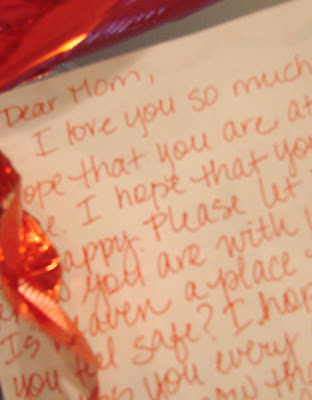 Dear Mom,
I love you so much
ope that you are at
e. I hope that you
appy. Please let
you are with
Is eaven a place
you feel safe? I hop
you every